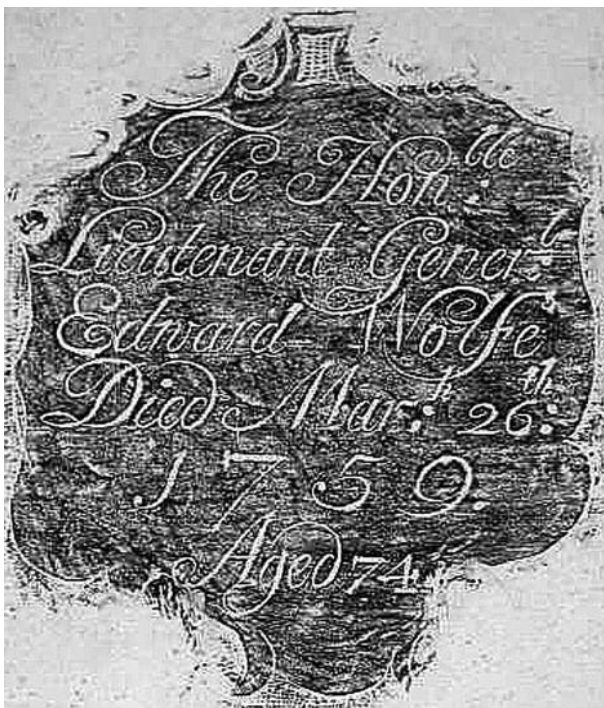 The Hon:ble
Lieutenant Gener:l
Edward Wolfe
Died Mar:h 26:th
1759.
Aged 74